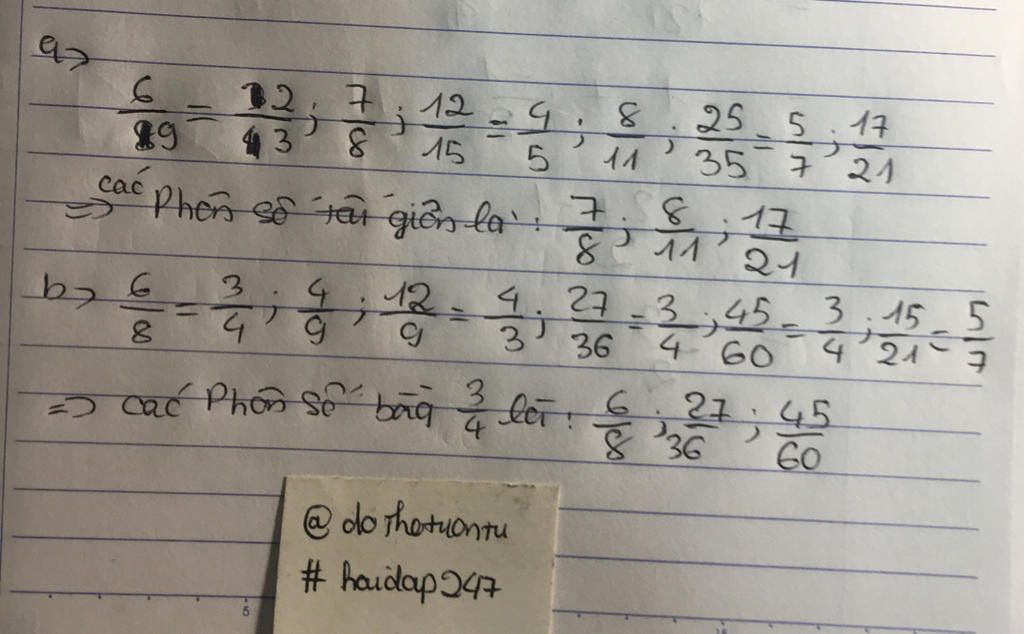 a>
6/9 = 2/3 ; 7/8 ; 12/15 = 4/5 ; 8/11 ; 25/35 = 5/7 ; 17/21
=> các Phân số tối giản là : 7/8 ; 8/11 ; 17/21
b> 6/8 = 3/4 ; 4/9 ; 12/9 = 4/3 ; 27/36 = 3/4 ; 45/60 = 3/4 ; 15/21 = 5/7
=> các Phân số bằng 3/4 là : 6/8 ; 27/36 ; 45/60
@ dothatuantu
# hoidap247
5